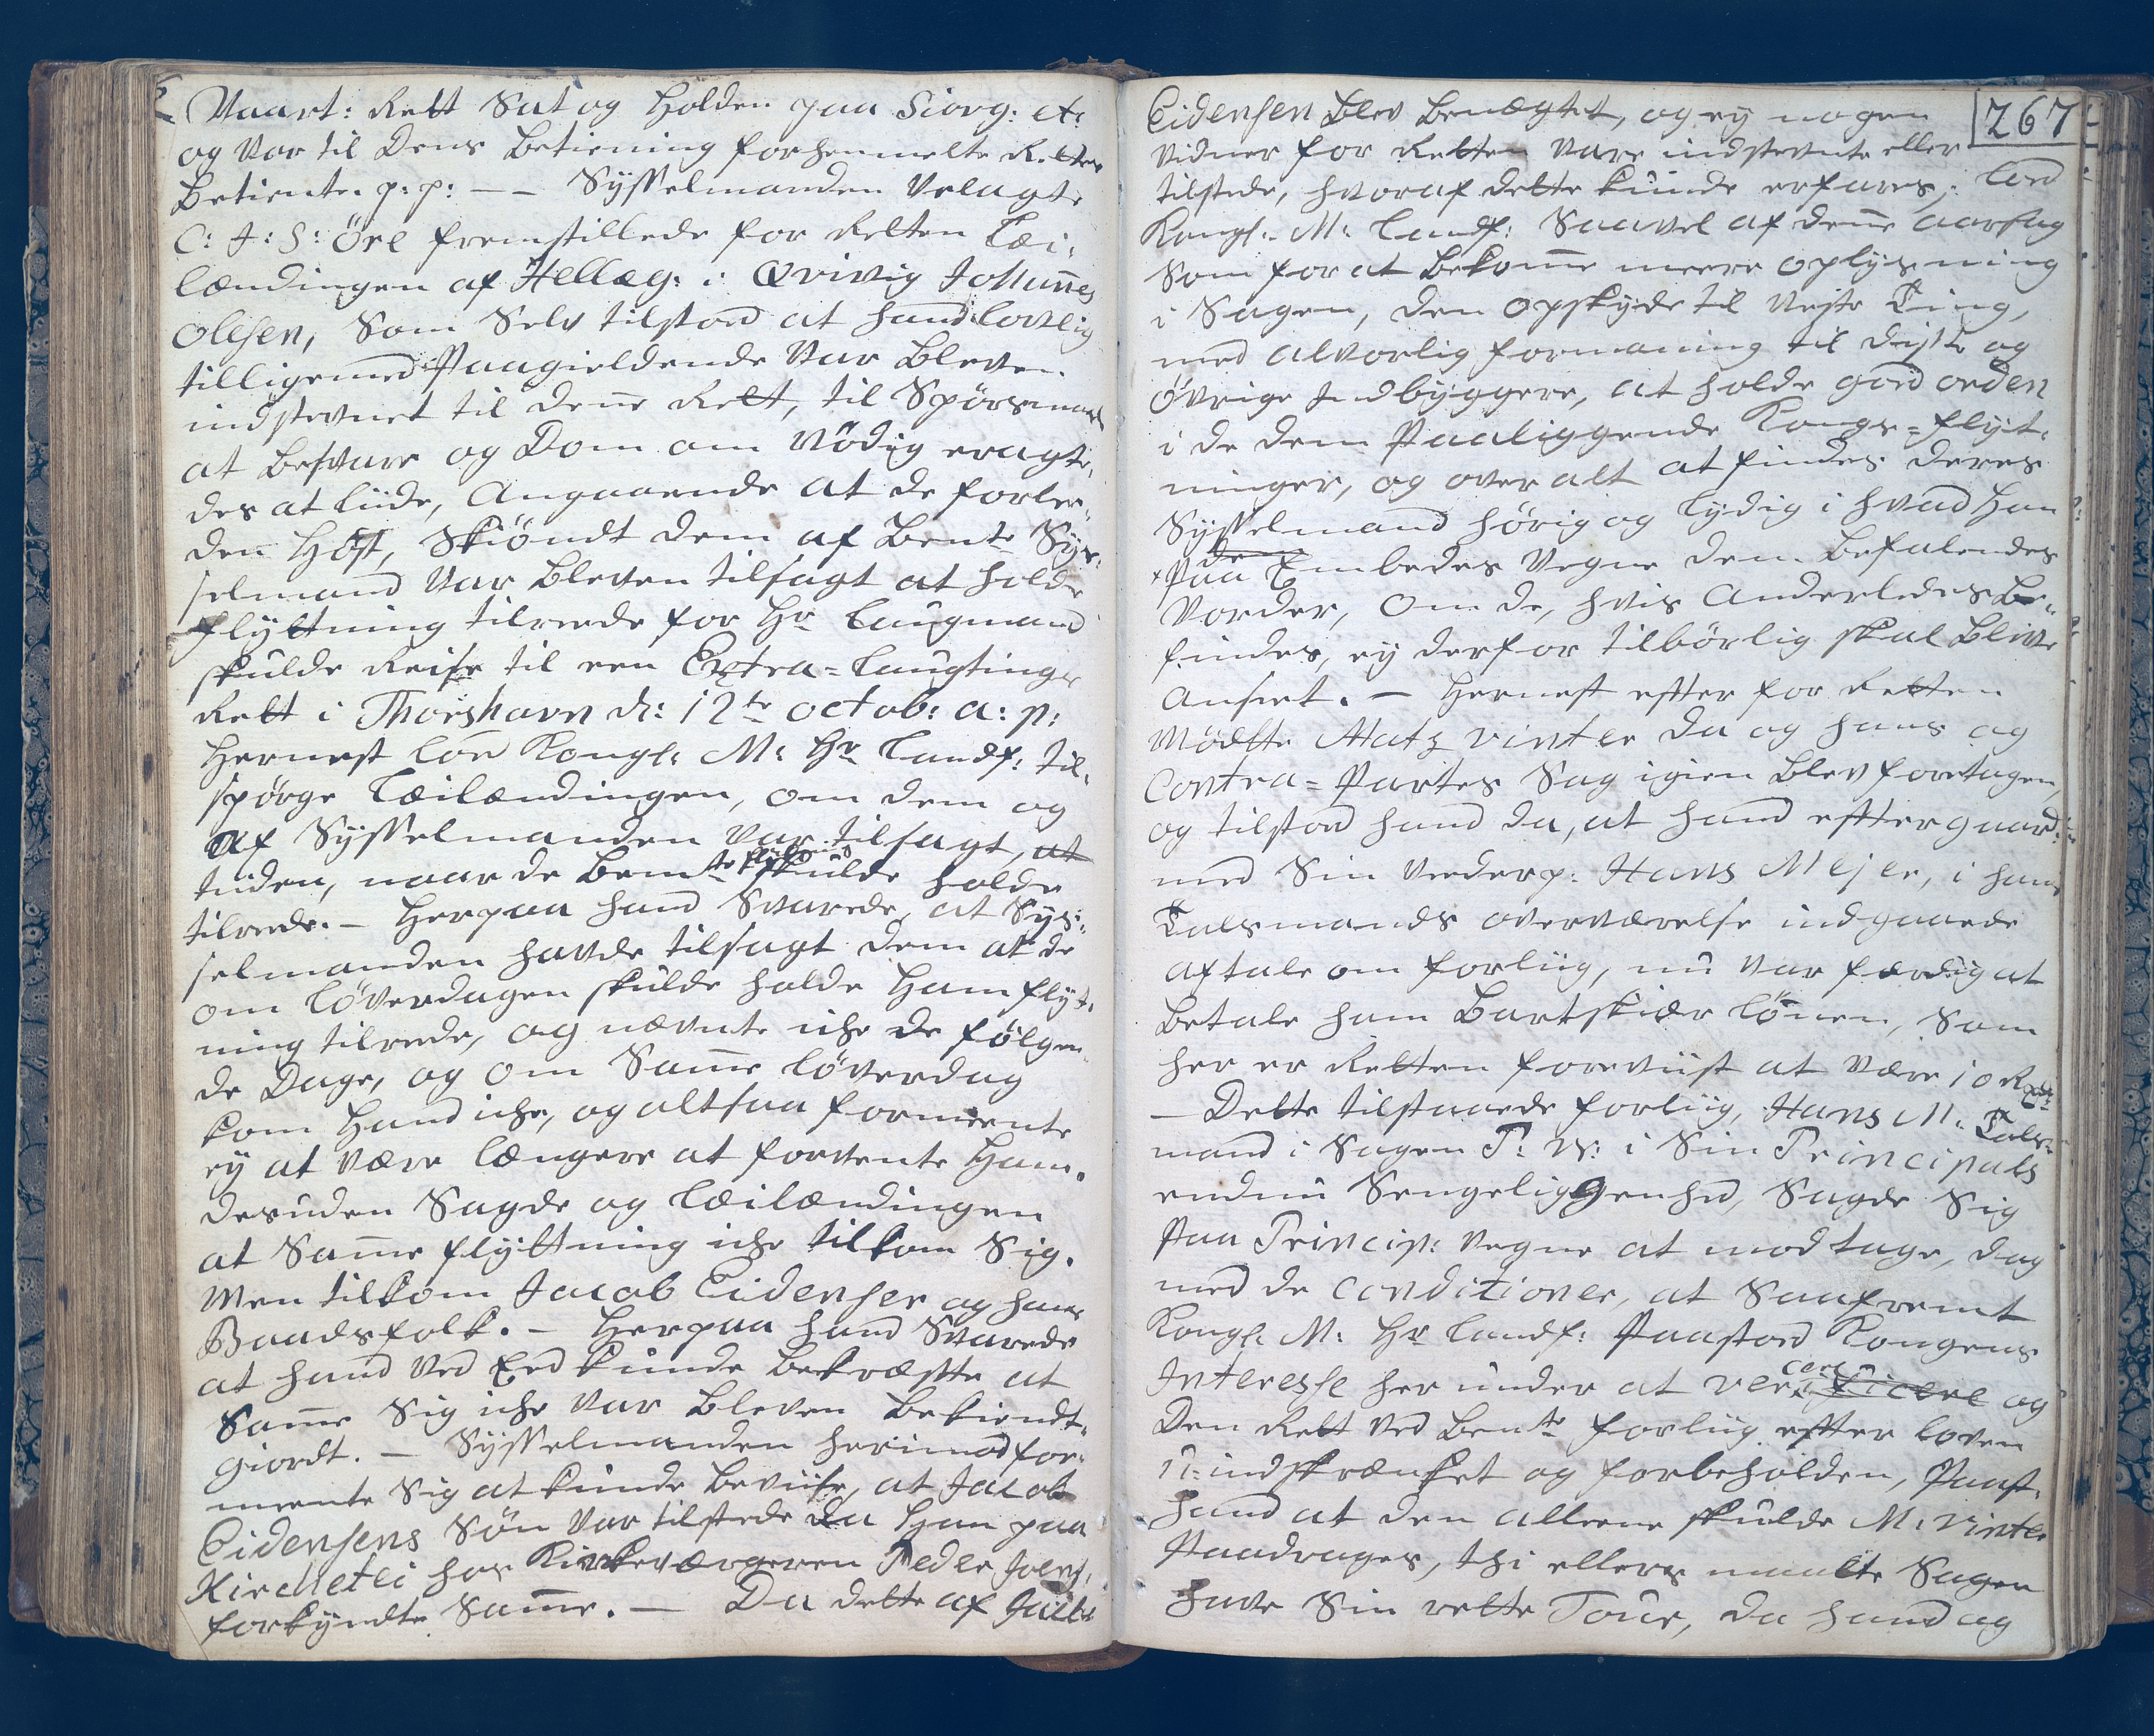 Vaart: Rett Sat og Holden paa Siovg: etc
og Var til Dens Betiening forhenmelte Rettes
Betiente. p: p: — — Sysselmanden Velagte
C: J: S: Öre fremstillede for Retten Læi,,
lændingen af Hellæg: i Qvivig Johannes
Olesen, Som Selv tilstoed at hand lovlig
tilligemed Paagieldende Var Bleven
indstevnet til denne Rett, til Spörsmaal
at Besvare og Dom om Nödig eragte,,
des at liide, Angaaende at de forle,,
den Höst, Skiöndt dem af Bente Sys,,
selmand Var Bleven tilsagt at holde
flyttning tilrede for Hr Laugmand
skulde Reise til een Extra=Laugtings
Rett i Thorshavn d: 12te octob: a: p:
Hernest lod Kongl: M: Hr Landf: til,,
spörge Læilændingen, om dem og
af Sysselmanden Var tilsagt, at
tiiden, naar de Bemte flytning skulde holde
tilrede. — Herpaa hand Svarede, at Sys,,
selmanden havde tilsagt dem at de
om Löverdagen skulde holde Ham flyt,,
ning tilrede, og nævnte iche de fölgen,,
de Dage, og om Samme Löverdag
kom Hand iche, og altsaa formeente
ey at være længere at forvente Ham.
desuden Sagde og Læilændingen
at Samme flyttning iche tilkom Sig.
Men tilkom Jacob Eidensen og hans
Baadsfolk. — Herpaa hand Svarede
at hand Ved Eed kunde Bekræffte at
Samme Sig iche Var Bleven Bekiendt,,
giordt. — Sysselmanden herimod for,,
meente Sig at kunde Beviise, at Jacob
Eidensens Sön Var tilstede da Han paa
Kirchetei hos Kirkeværgeren Peder Joens,
forkyndte Samme. — Da dette af Jacob
267
Eidensen Blev Benægtet, og ey nogen
Vidner for Retten Vare indstevnte eller
tilstede, hvoraf dette kunde erfares, Lod
Kongl: M: Landf: Saavel af denne aarsag
Som for at Bekomme meere oplysning
i Sagen, den opskyde til Neste Ting,
med alvorlig formaning til diste og
övrige Indbyggere, at holde goed orden
i de dem Paaliggende Kongs=flyt,,
ninger, og over alt at findes deres
Sysselmand hörig og lydig i hvad Han
Paa Embedes Vegne dem Befalendes
Vorder, Om de, hvis Anderledes Be,,
findes, ey derfor tilbörlig skal Blive
Anseet. — Hernest effter for Retten
Mödte Matz Vinter da og hans og
Contra=Partes Sag igien Blev foretagen,
og tilstoed hand da, at hand effter giord
med Sin Vederp: Hans Mejer, i hans
Talsmands overværelse indgaaede
aftale om forliig, nu Var færdig at
Betale ham Bartskiær Lönnen, Som
her er Retten foreviist at Være 10 Rdr
— Dette tilstaaede forliig, Hans M: Tals,,
mand i Sagen P: W: i Sin Principals
endnu Sengeliggenhed, Sagde Sig
Paa Princip: Vegne at modtage, dog
med de Conditioner, at Saafremt
Kongl: M: Hr Landf: Paastoed Kongens
Interesse her under at og
Den Rett Ved Bente forliig effter loven
u=indskrænket og forbeholden, Paast:
Hand at den alleene skulde M: Vinter
Paadrages, thi ellers maatte Sagen
Have Sin rette Tour, da hand og